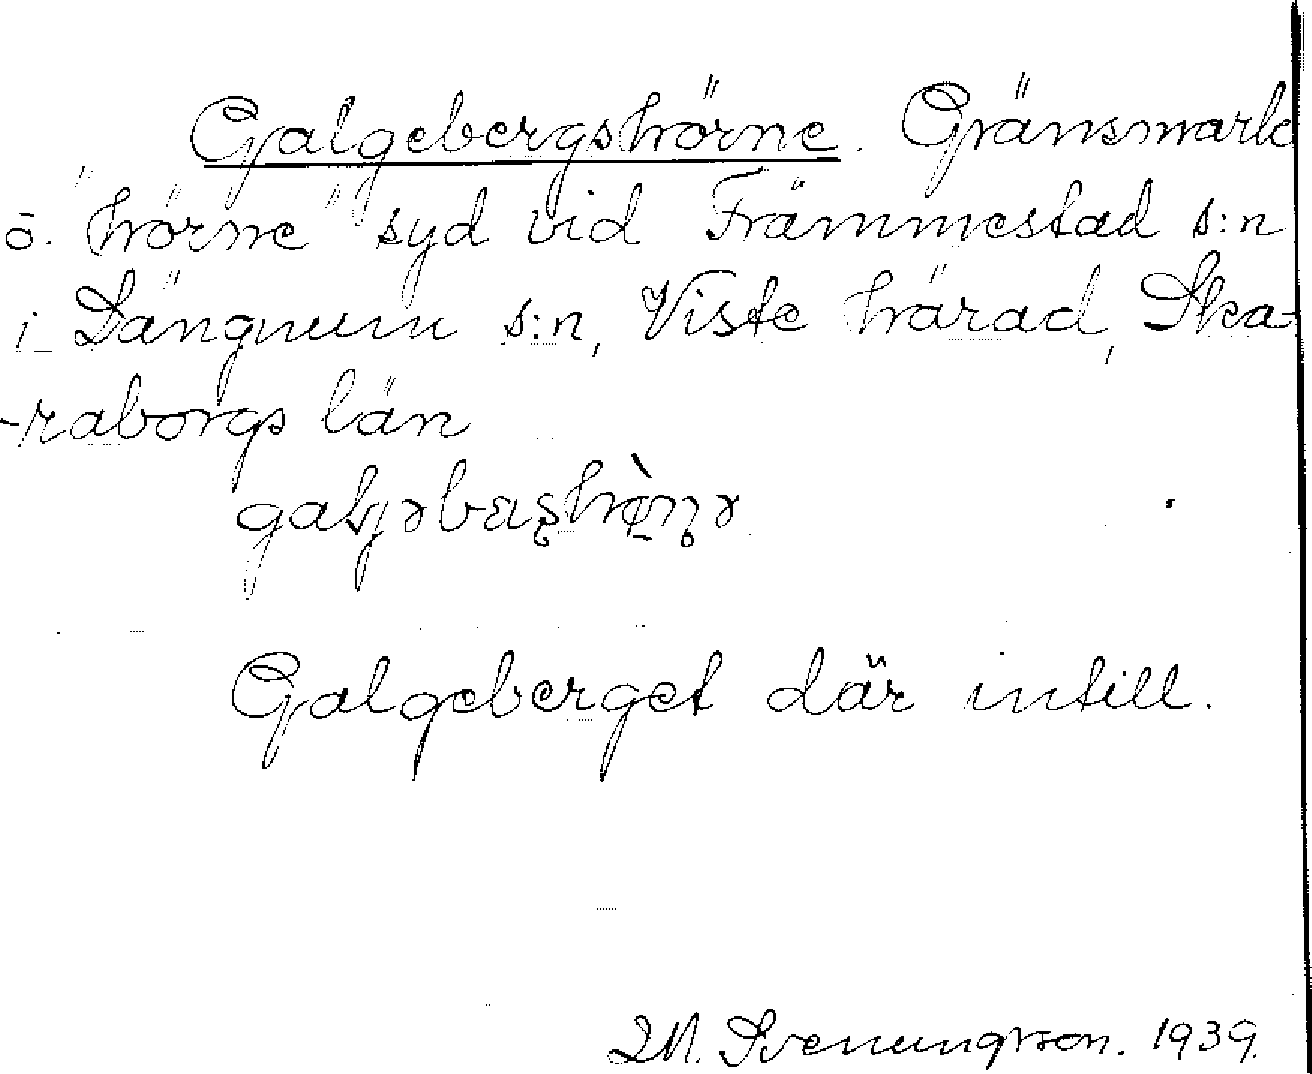 Galgebergshörne. Gränsmark
o. "hörne" syd vid Främmestad s:n
i Längnum s:n, Viste härad, Ska-
-raborgs län
Galgeberget där intill.
M. Svenungsson. 1939.